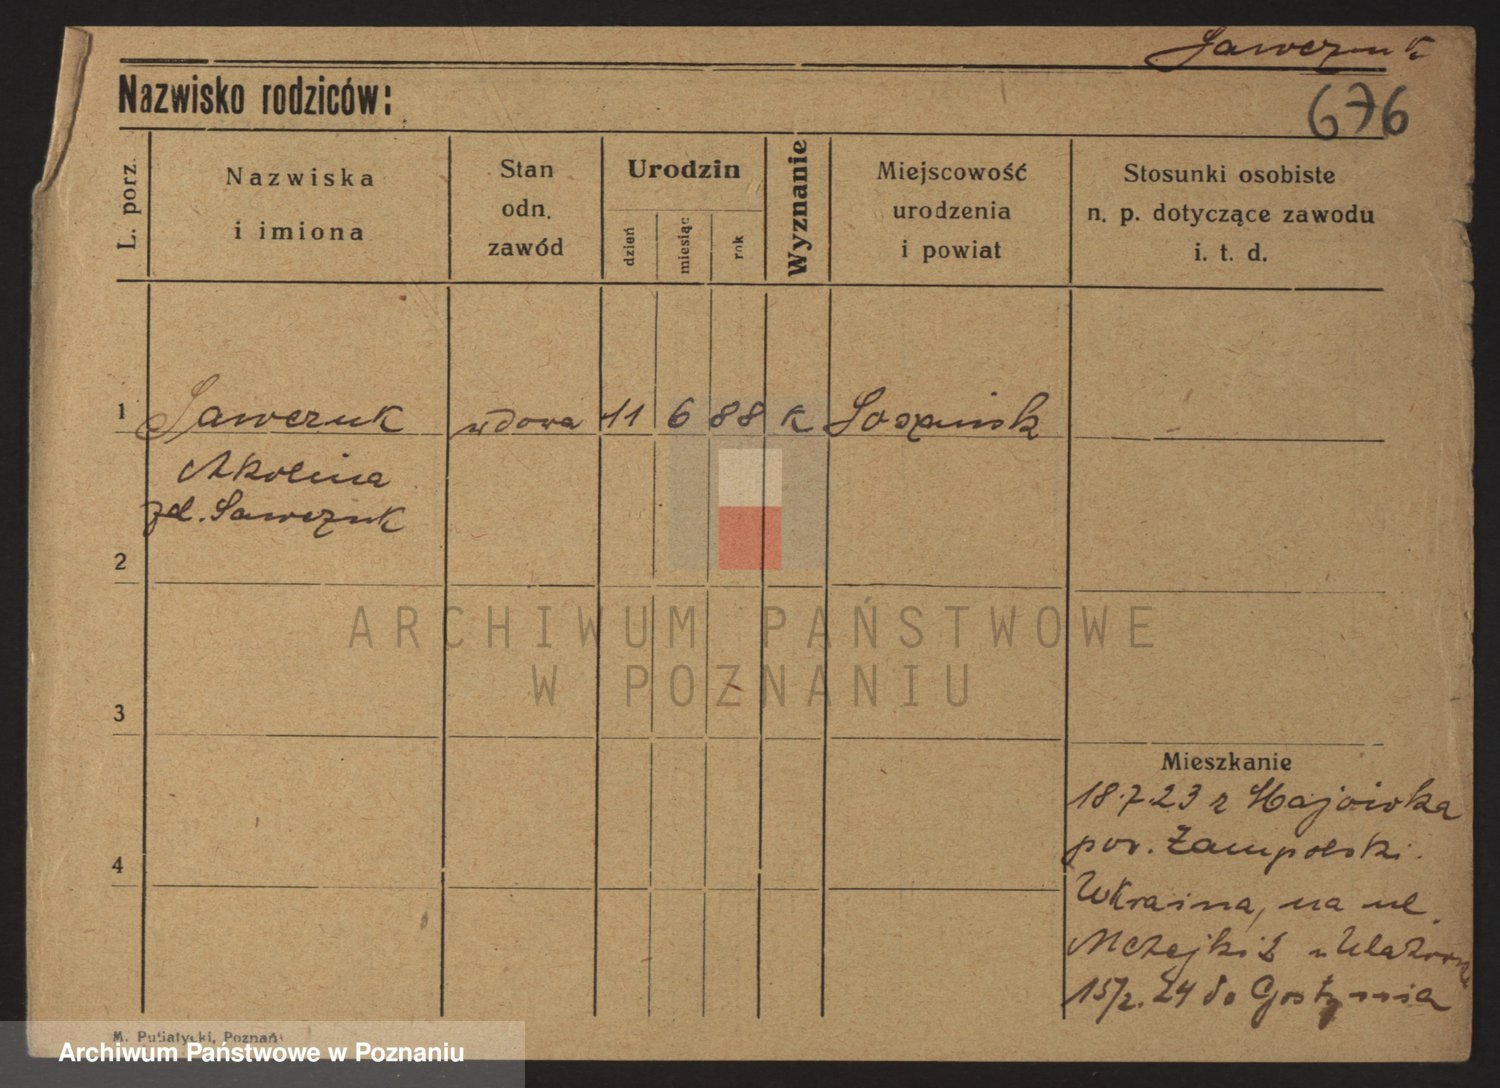 Sawczuk
Nazwisko rodziców:
676
L. porz.
Nazwiska
i imiona
Stan
odn.
zawód
Urodzin
dzień
miesiąc
rok
Wyznanie
Miejscowość
urodzenia
i powiat
Stosunki osobiste
n. p. dotyczące zawodu
i. t. d.
1 Sawczuk wdowa 11 6 88 K
Akolina
zd. Sawczuk
2
ARCHIWUM PAŃSTWOWE
W POZNANIU
3
Mieszkanie
18.7.23 z Hajoivka
pow. Zampolski.
4
Ukraina, na ul.
Matejki 2 u
15/2. 24 do Gostynia
M. Putiatycki, Poznań
Archiwum Państwowe w Poznaniu